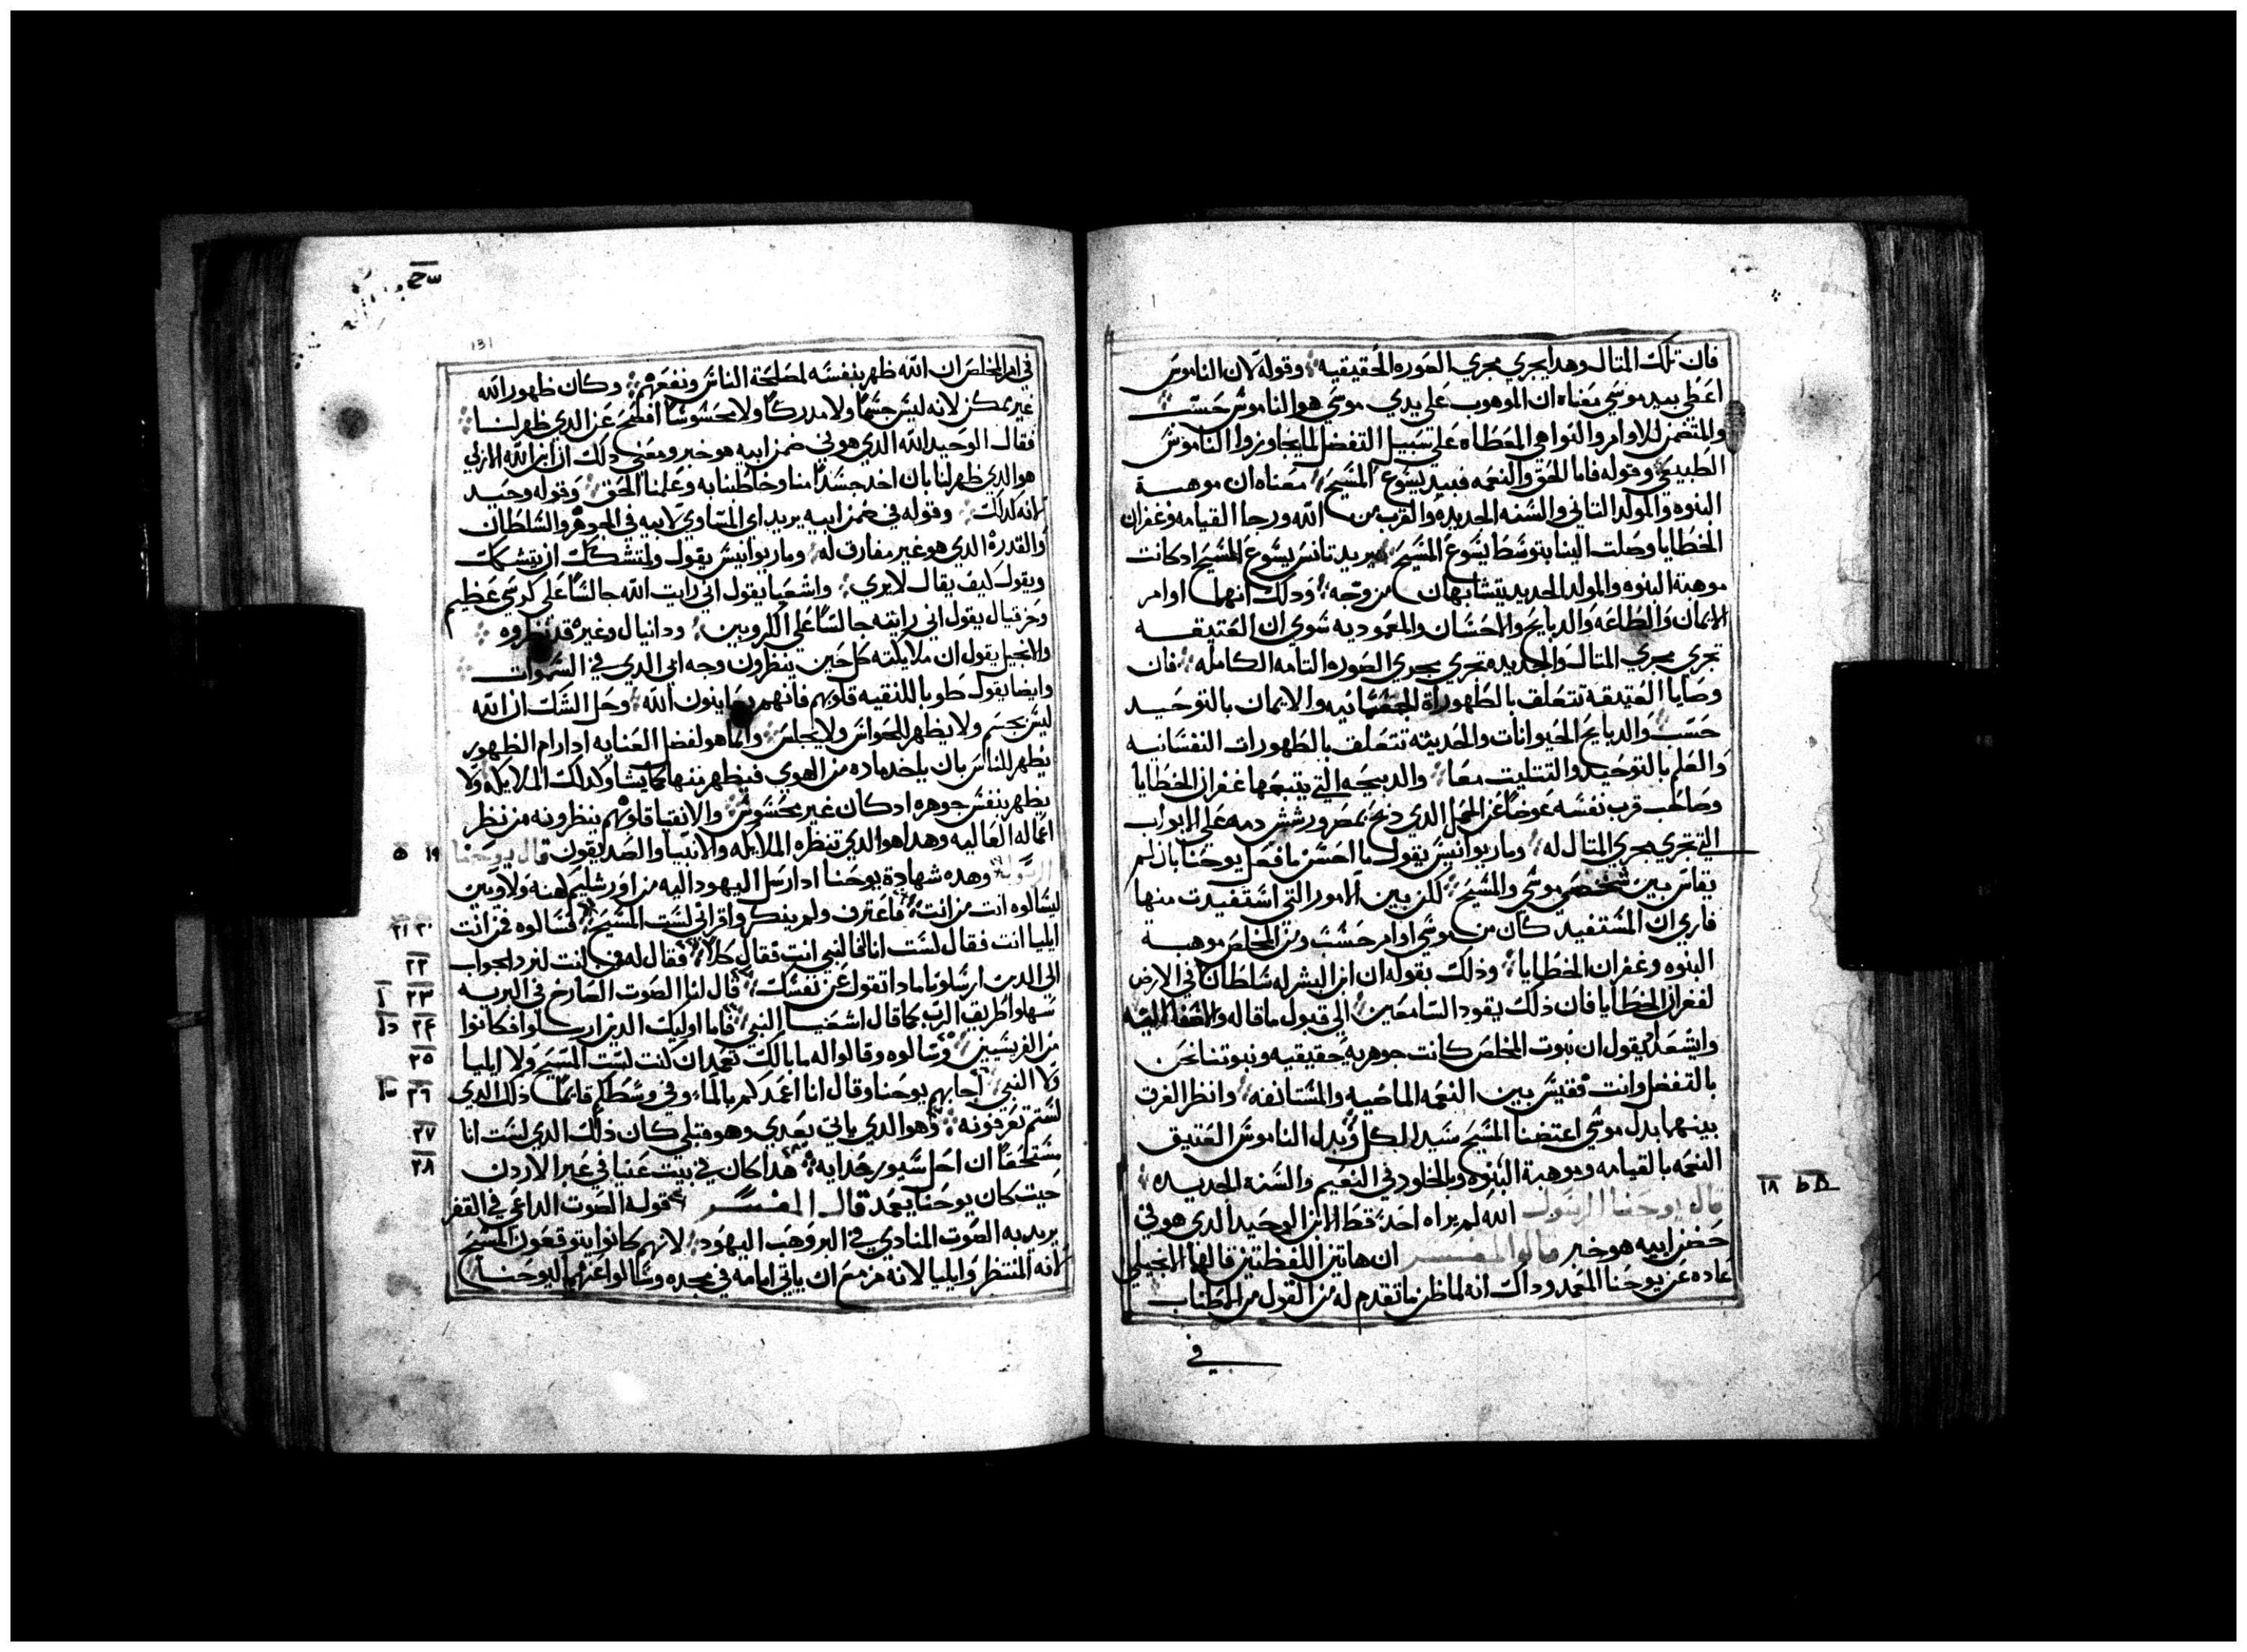 فان تلك المتال وهدا يجري مجري الصوره الحقيقيه وقوله لان الناموس
اعطي بيد موسي معناه ان الموهوب علي يدي موسي هو الناموس حسب
والمتضمن للاوامر والنواهي المعطاه علي سبيل التفضل لما يجاوزوا الناموس
الطبيعي وقوله فاما الحق والنعمه فبيد يسوع المسيح معناه ان موهبة
البنوه والمولد التاني والسنه الجديده والقرب من الله ورجا القيامه وغفران
الخطايا وصلت الينا بتوسط يسوع المسيح يريد تانس يسوع المسيح ادكانت
موهبة البنوه والمولد الجديد يتشابهان من وجه ودلك انهما اوامر
الايمان والطاعه والدبايح والاحسان والمعموديه سوي ان العتيقه
تجري مجري المتال والجديده تجري مجري الصوره التامه الكامله فان
وصايا العتيقة تتعلق بالطهوراة الجسمانيه والايمان بالتوحيد
حسب والدبايح الحيوانات والحديثه تتعلف بالطهورات النفسانيه
والعلم بالتوحيد والتتليت معا والدبيحه التي يتبعها غفران الخطايا
وصاحب قرب نفسه عوضا عن الحمل الدي دبح بمصر ورشش دمه علي الابواب
التي تجري مجري المتال له وماريوانيس يقول ما احسن ما فعل يوحنا بان لم
يقاس بين شخصي موسي والمسيح لكن بين الامور التي استفيدت منها
فاري ان المستفيد كان من موسي اوامر حسب ومن المخلص موهبة
البنوه وغفران الخطايا وذلك بقوله ان ابن البشر له سلطان في الارض
لغفران الخطايا فان ذلك يقود السامعين الي قبول ما قاله
وايشعداد يقول ان نبوت المخلص كانت جوهريه حقيقيه ونبوتنا نحن
بالتفضل وانت فقيس بين النعمه الماضيه والمستانفه وانظر الفرق
بينهما بدل موسي اعتضنا المسيح سيد الكل وبدل الناموس العتيق
النعمه بالقيامه وموهبة البنوه وبالخلود في النعيم والسنه الجديده
قال يوحنا الرسول الله لم يراه احد قط الابن الوحيد الدي هو في
حضن ابيه هو خبر قالوا المفسر ان هاتين اللفظتين قالها الانجيلي
عاده عن يوحنا المعمد وداك انه لما ظن ما تقدم له من القول من الاطناب
في
١٨
131
في امر المخلص ان الله ظهر بنفسه لمصلحة الناس ونفعهم وكان ظهور الله
غير ممكن لانه ليس جسما ولا مدركا ولا محسوسا افصح عن الدي ظهر لنا
فقال الوحيد الله الدي هو في ضمن ابيه هو خبر ومعني دلك ان ابن الله الازلي
هو الدي ظهر لنا بان اخد جسدا منا وخاطبنا به وعلمنا الحق وقوله وحيد
لانه كدلك وقوله في ضمن ابيه يريد اي المساوي لابيه في الجوهر والسلطان
والقدرة الدي هو غير مفارق له وماريوانيس يقول ولمتشكك ان يتشكك
ويقول كيف يقال لا يري واشعيا يقول اني رايت الله جالسا علي كرسي عظيم
وحزقيال يقول اني رايته جالسا علي الكروبين ودانيال وغيره قد نظروه
والانجيل يقول ان ملايكته كل حين ينظرون وجه ابي الدي في السموات
وايضا يقول طوبا للنقيه قلوبهم فانهم يعاينون الله وحل الشك ان الله
ليس بجسم ولا يظهر للحواس ولا يجلس وانما هو لفضل العنايه ادا رام الظهور
يظهر للناس بان ياخد ماده من الهوي فيظهر منها كما يشا وكدلك الملايكه ولا
يظهر بنفس جوهره ادكان غير محسوس والاتقيا قلوبهم ينظرونه من نظر
اعماله العاليه وهدا هو الدي تنظره الملايكه والانبيا والصديقون قال يوحنا
الرسول وهده شهادة يوحنا ادارسل اليهود اليه من اورشليم كهنه ولاويين
ليسالوه انت من انت فاعترف ولم ينكر واقر اني لست المسيح فسالوه فمن انت
ايليا انت فقال لست انا فالنبي انت فقال كلا فقال له فمن انت لنرد الجواب
الي الدين ارسلونا مادا تقول عن نفسك قال لنا الصوت الصارخ في البريه
سهلوا طريق الرب كما قال اشعيا النبي فاما اوليك الدين ارسلوا فكانوا
من الفريسين وسالوه وقالوا له ما بالك تعمد ان كنت لست المسيح ولا ايليا
ولا النبي اجابهم يوحنا وقال انا اعمدكم بالماء وفي وسطكم قايما ذلك الدي
لستم تعرفونه وهو الدي ياتي بعدي وهو قبلي كان ذلك الدي لست انا
مستحقا ان احل سيور حدايه هدا كان في بيت عنيا في عبر الاردن
حيت كان يوحنا يعمد قال المفسر قوله الصوت الداعي في القفر
يريد به الصوت المنادي في البر وحب اليهود لانهم كانوا يتوقعون المسيح
لانه المنتظر وايليا لانه مزمع ان ياتي امامه في مجده وسالوا عنهما ليوحنا
١٩
٢٠ ٢١
٢٢
٢٣
٢٤
٢٥
٢٦
٢٧
٢٨